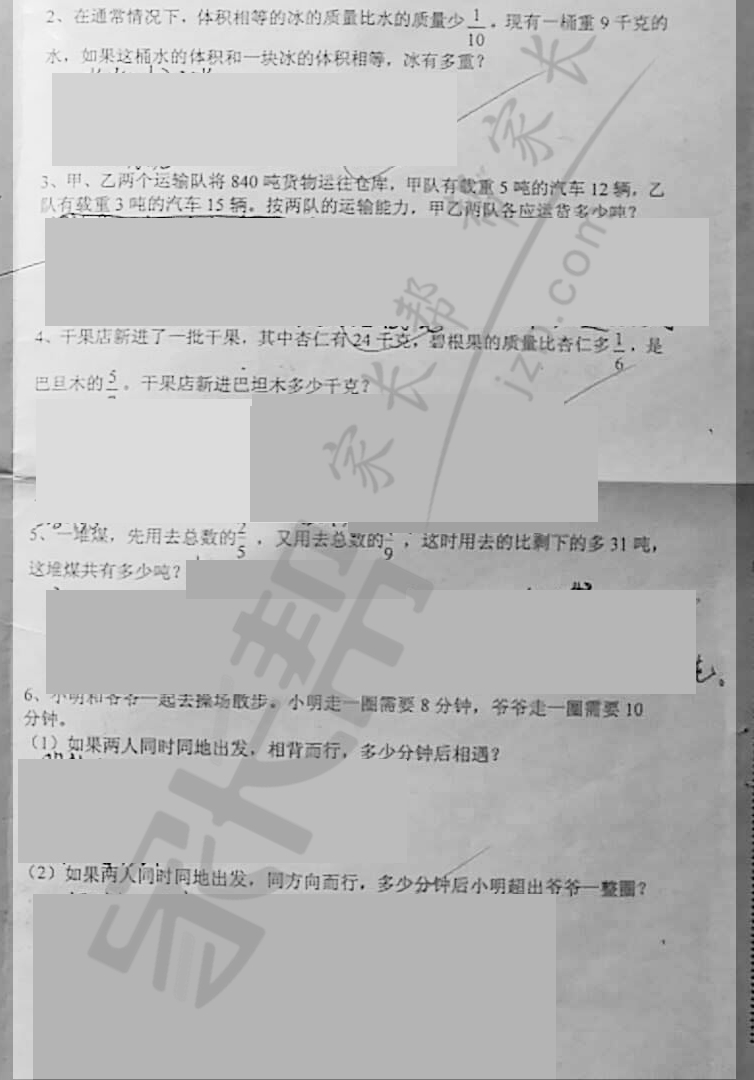 2、在通常情况下，体积相等的冰的质量比水的质量少1/10。现有一桶重9千克的
水，如果这桶水的体积和一块冰的体积相等，冰有多重？
3、甲、乙两个运输队将840吨货物运往仓库，甲队有载重5吨的汽车12辆，乙
队有载重3吨的汽车15辆。按两队的运输能力，甲乙两队各应运货多少吨？
4、干果店新进了一批干果，其中杏仁有24千克，碧根果的质量比杏仁多1/6，是
巴旦木的5/。干果店新进巴坦木多少千克？
5、一堆煤，先用去总数的2/5，又用去总数的/9，这时用去的比剩下的多31吨，
这堆煤共有多少吨？
6、小明和爷爷一起去操场散步。小明走一圈需要8分钟，爷爷走一圈需要10
分钟。
（1）如果两人同时同地出发，相背而行，多少分钟后相遇？
（2）如果两人同时同地出发，同方向而行，多少分钟后小明超出爷爷一整圈？
家长帮 家长帮
jzb.com
家长帮